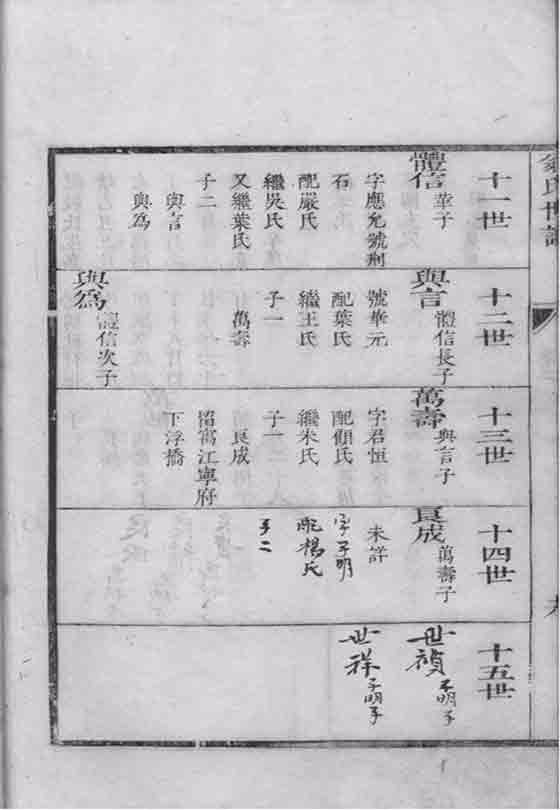 氏世譜
十一世
體信 華子
字應允號荊
石
配嚴氏
繼吳氏
又繼葉氏
子二
與言
與為
十二世
與言 體信長子
號華元
配葉氏
繼王氏
子一
萬壽
與為 體信次子
十三世
萬壽 與言子
字君恒
配顧氏
繼朱氏
子一
良成
留寓江寧府
下浮橋
十四世
良成 萬壽子
未詳
字子明
配楊氏
子二
十五世
世禎 子明子
世祥 子明子